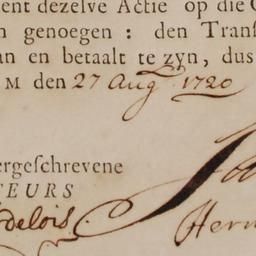 ent dezelve Actie op die
n genoegen : den Trans
an en betaalt te zyn, dus
M den 27 Aug 1720
ergeschrevene
TEURS
delois
Herm